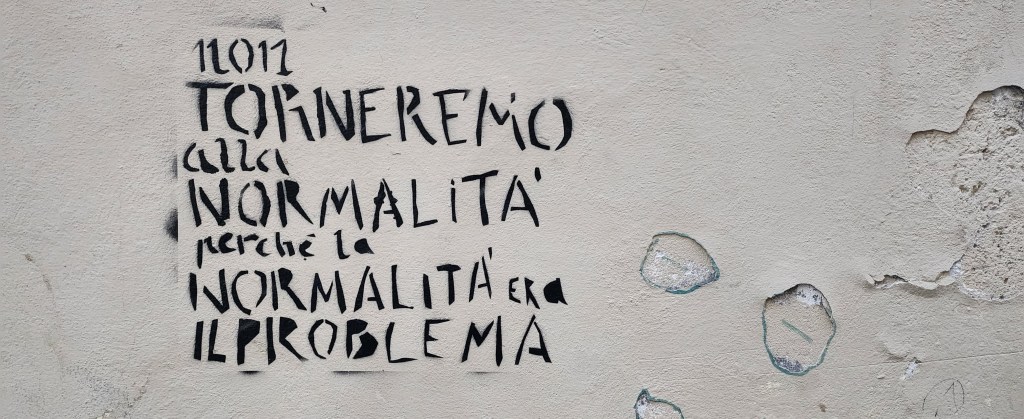 non
TORNEREMO
alla
NORMALITÀ
perché la
NORMALITÀ ERA
IL PROBLEMA